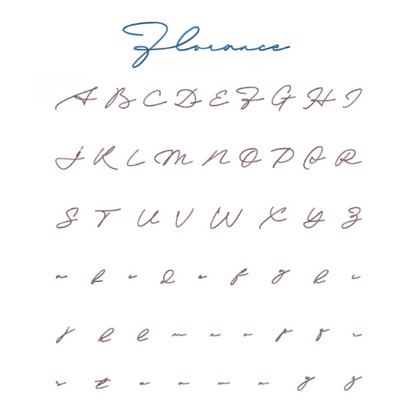 Florance
A B C D E F G H I
J K L M N O P Q R
S T U V W X Y Z
a b c d e f g h i
j k l m n o p q r
s t u v w x y z